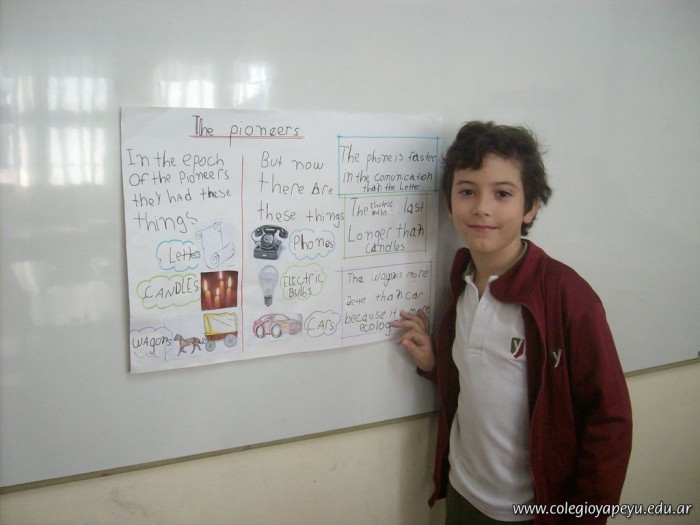 The pioneers
In the epoch
Of the pioneers
they had these
things
Letters
CANDLES
WAgons
But now
there Are
these things
Phones
ELECTRIC
BULBS
CArs
The phone is faster
in the comunication
than the Letter
The ELECTRIC BULBS last
Longer than
candles
The wagon is more
Better than car
because it is more
ecolog
Y
Y
www.colegioyapeyu.edu.ar